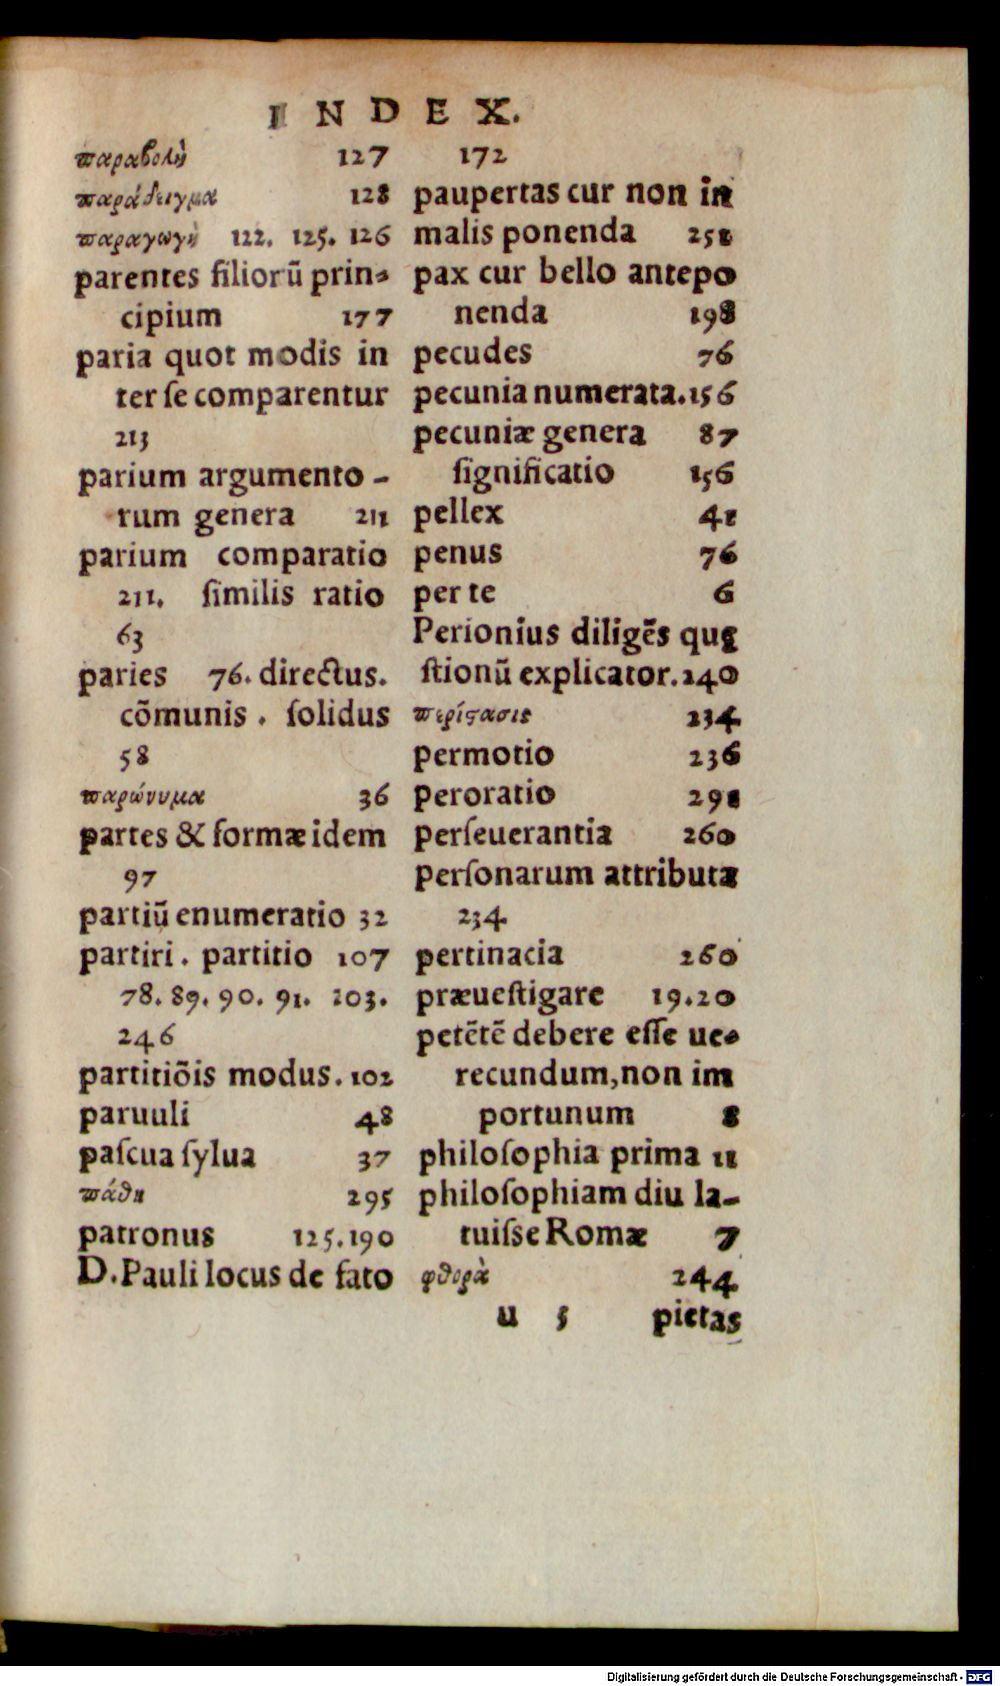 INDEX.
παραβολὴ 127
παράδειγμα 128
παραγωγὴ 122. 125. 126
parentes filiorū prin-
cipium 177
paria quot modis in
ter ſe comparentur
213
parium argumento -
rum genera 211
parium comparatio
211. ſimilis ratio
63
paries 76. directus.
cōmunis . ſolidus
58
παρώνυμα 36
partes & formæ idem
97
partiū enumeratio 32
partiri . partitio 107
78. 89. 90. 91. 103.
246
partitiōis modus. 102
paruuli 48
paſcua ſylua 37
πάθη 295
patronus 125.190
D.Pauli locus de fato
172
paupertas cur non in
malis ponenda 251
pax cur bello antepo
nenda 198
pecudes 76
pecunia numerata.156
pecuniæ genera 87
ſignificatio 156
pellex 41
penus 76
per te 6
Perionius diligēs quę
ſtionū explicator.240
περίϛασις 234
permotio 236
peroratio 291
perſeuerantia 260
perſonarum attributa
234
pertinacia 260
præueſtigare 19.20
petētē debere eſſe ue-
recundum,non im
portunum 8
philoſophia prima 11
philoſophiam diu la-
tuiſse Romæ 7
φθορὰ 244
u 5 pietas
Digitalisierung gefördert durch die Deutsche Forschungsgemeinschaft - DFG